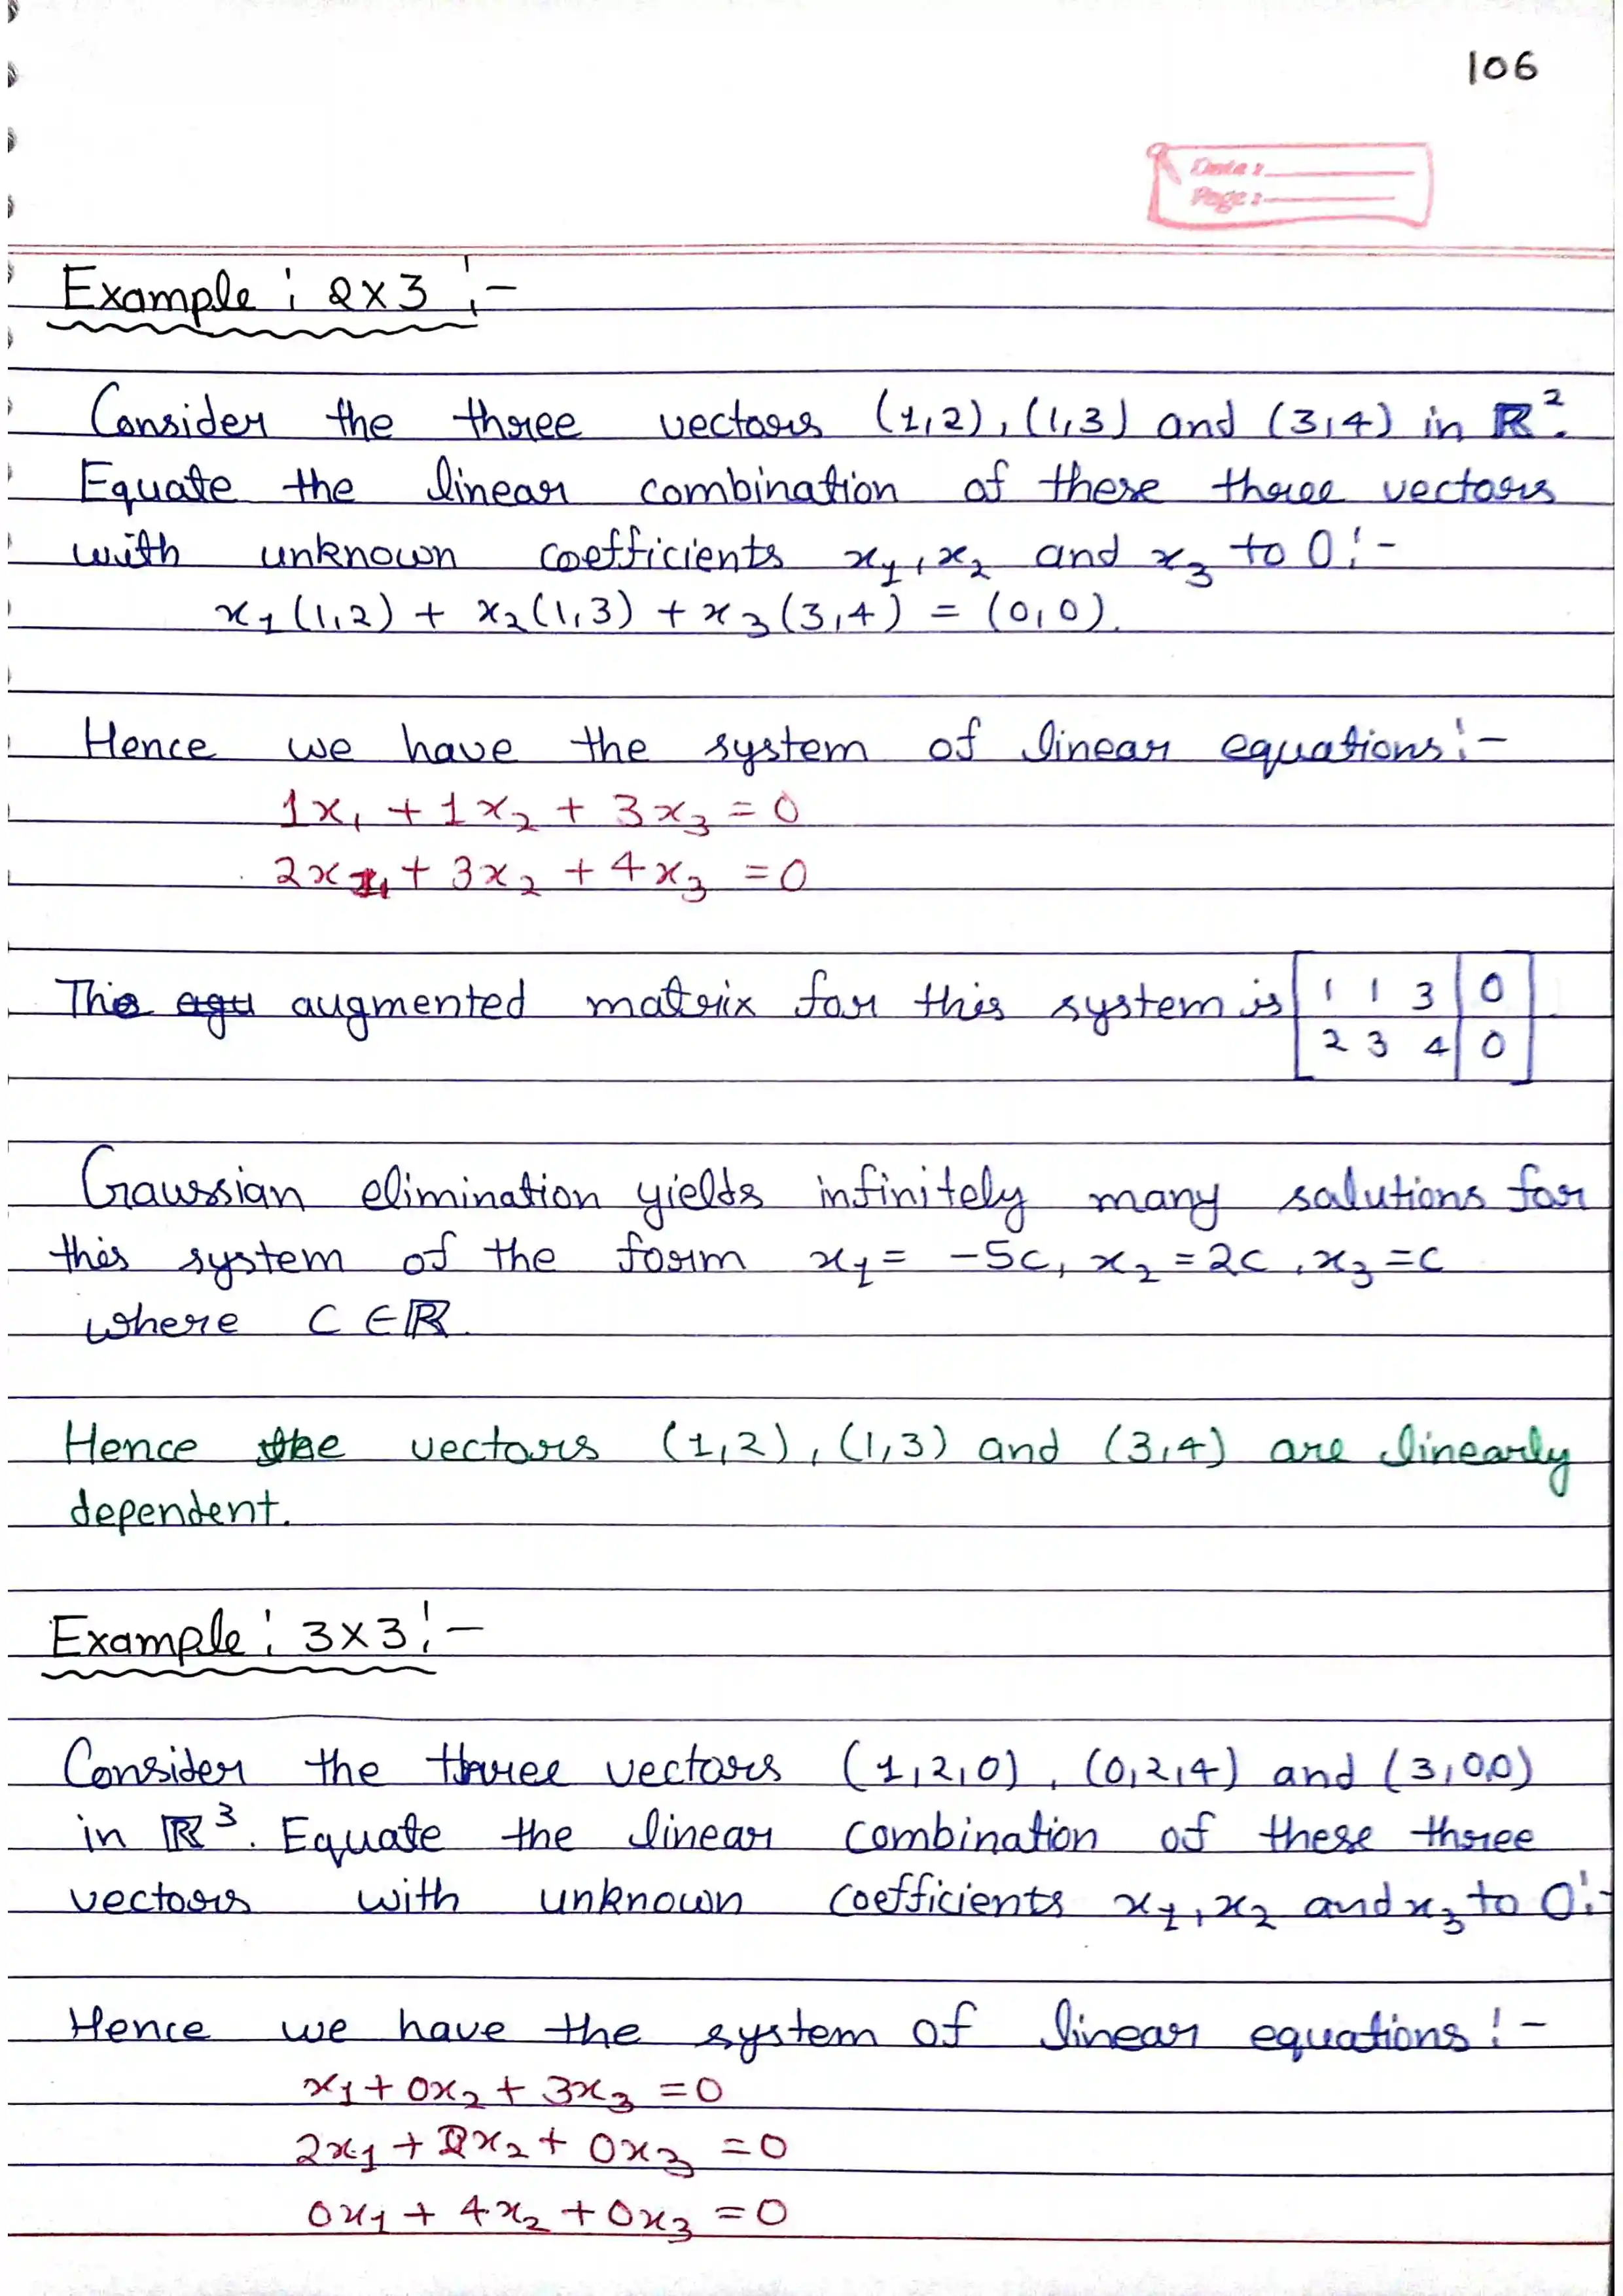 106
Date :
Page :
Example : 2×3 :-
Consider the three vectors (1,2), (1,3) and (3,4) in ℝ².
Equate the linear combination of these three vectors
with unknown coefficients x₁, x₂ and x₃ to 0 :-
x₁(1,2) + x₂(1,3) + x₃(3,4) = (0,0).
Hence we have the system of linear equations :-
1x₁ + 1x₂ + 3x₃ = 0
2x₁ + 3x₂ + 4x₃ = 0
The augmented matrix for this system is [1 1 3 | 0
2 3 4 | 0]
Gaussian elimination yields infinitely many solutions for
this system of the form x₁ = -5c, x₂ = 2c, x₃ = c
where c ∈ ℝ.
Hence the vectors (1,2), (1,3) and (3,4) are linearly
dependent.
Example : 3×3 :-
Consider the three vectors (1,2,0), (0,2,4) and (3,0,0)
in ℝ³. Equate the linear combination of these three
vectors with unknown coefficients x₁, x₂ and x₃ to 0 :-
Hence we have the system of linear equations :-
x₁ + 0x₂ + 3x₃ = 0
2x₁ + 2x₂ + 0x₃ = 0
0x₁ + 4x₂ + 0x₃ = 0